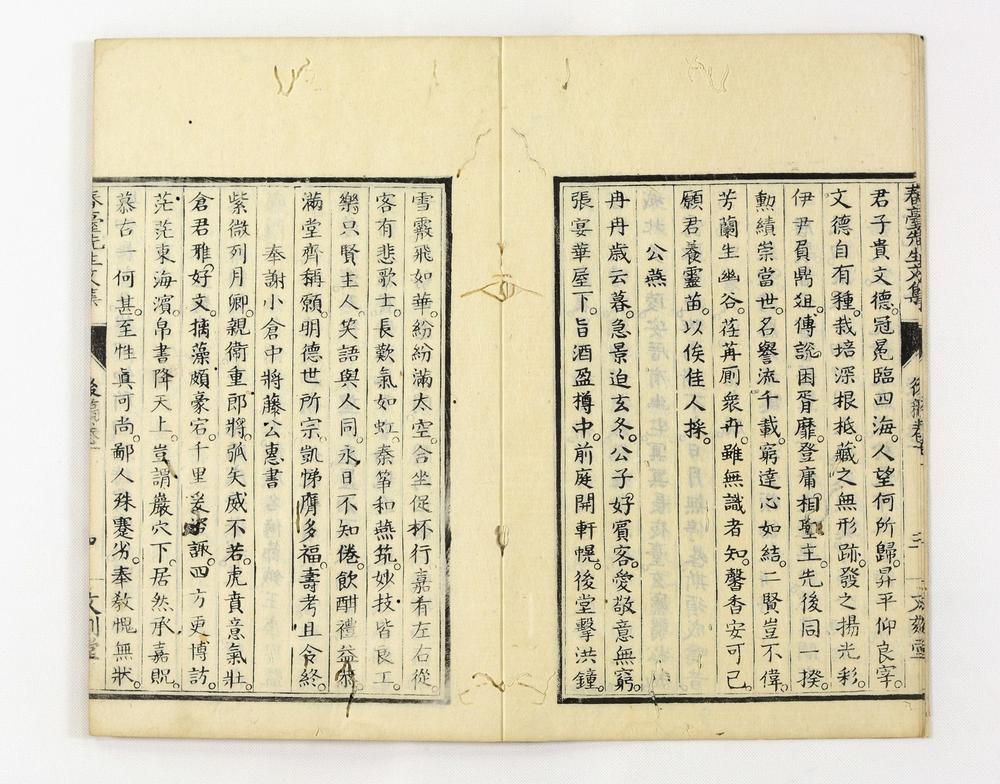 春臺先生文集
後篇卷
君子貴文德。冠冕臨四海。人望何所歸。昇平仰良宰。
文德自有種。栽培深根柢。藏之無形跡。發之揚光彩。
伊尹負鼎俎。傅說困胥靡。登庸相聖主。先後同一揆。
勳績崇當世。名譽流千載。窮達心如結。二賢豈不偉。
芳蘭生幽谷。荏苒厠衆卉。雖無識者知。馨香安可已。
願君養靈苗。以俟佳人採。
公燕
冉冉歲云暮。急景迫玄冬。公子好賓客。愛敬意無窮。
張宴華屋下。旨酒盈樽中。前庭開軒幌。後堂擊洪鐘。
雪霰飛如華。紛紛滿太空。合坐促杯行。嘉肴左右從。
客有悲歌士。長歎氣如虹。秦箏和燕筑。妙技皆良工。
樂只賢主人。笑語與人同。永日不知倦。飲酣禮益
滿堂齊稱願。明德世所宗。凱悌膺多福。壽考且令終。
奉謝小倉中將藤公惠書
紫微列月卿。親衛重郎將。弧矢威不若。虎賁意氣壯。
倉君雅好文。摛藻頗豪宕。千里爰諮諏。四方更博訪。
茫茫東海濱。帛書降天上。豈謂巖穴下。居然承嘉貺。
慕古一何甚。至性眞可尚。鄙人殊蹇劣。奉教愧無狀。
春臺先生文集
後篇卷